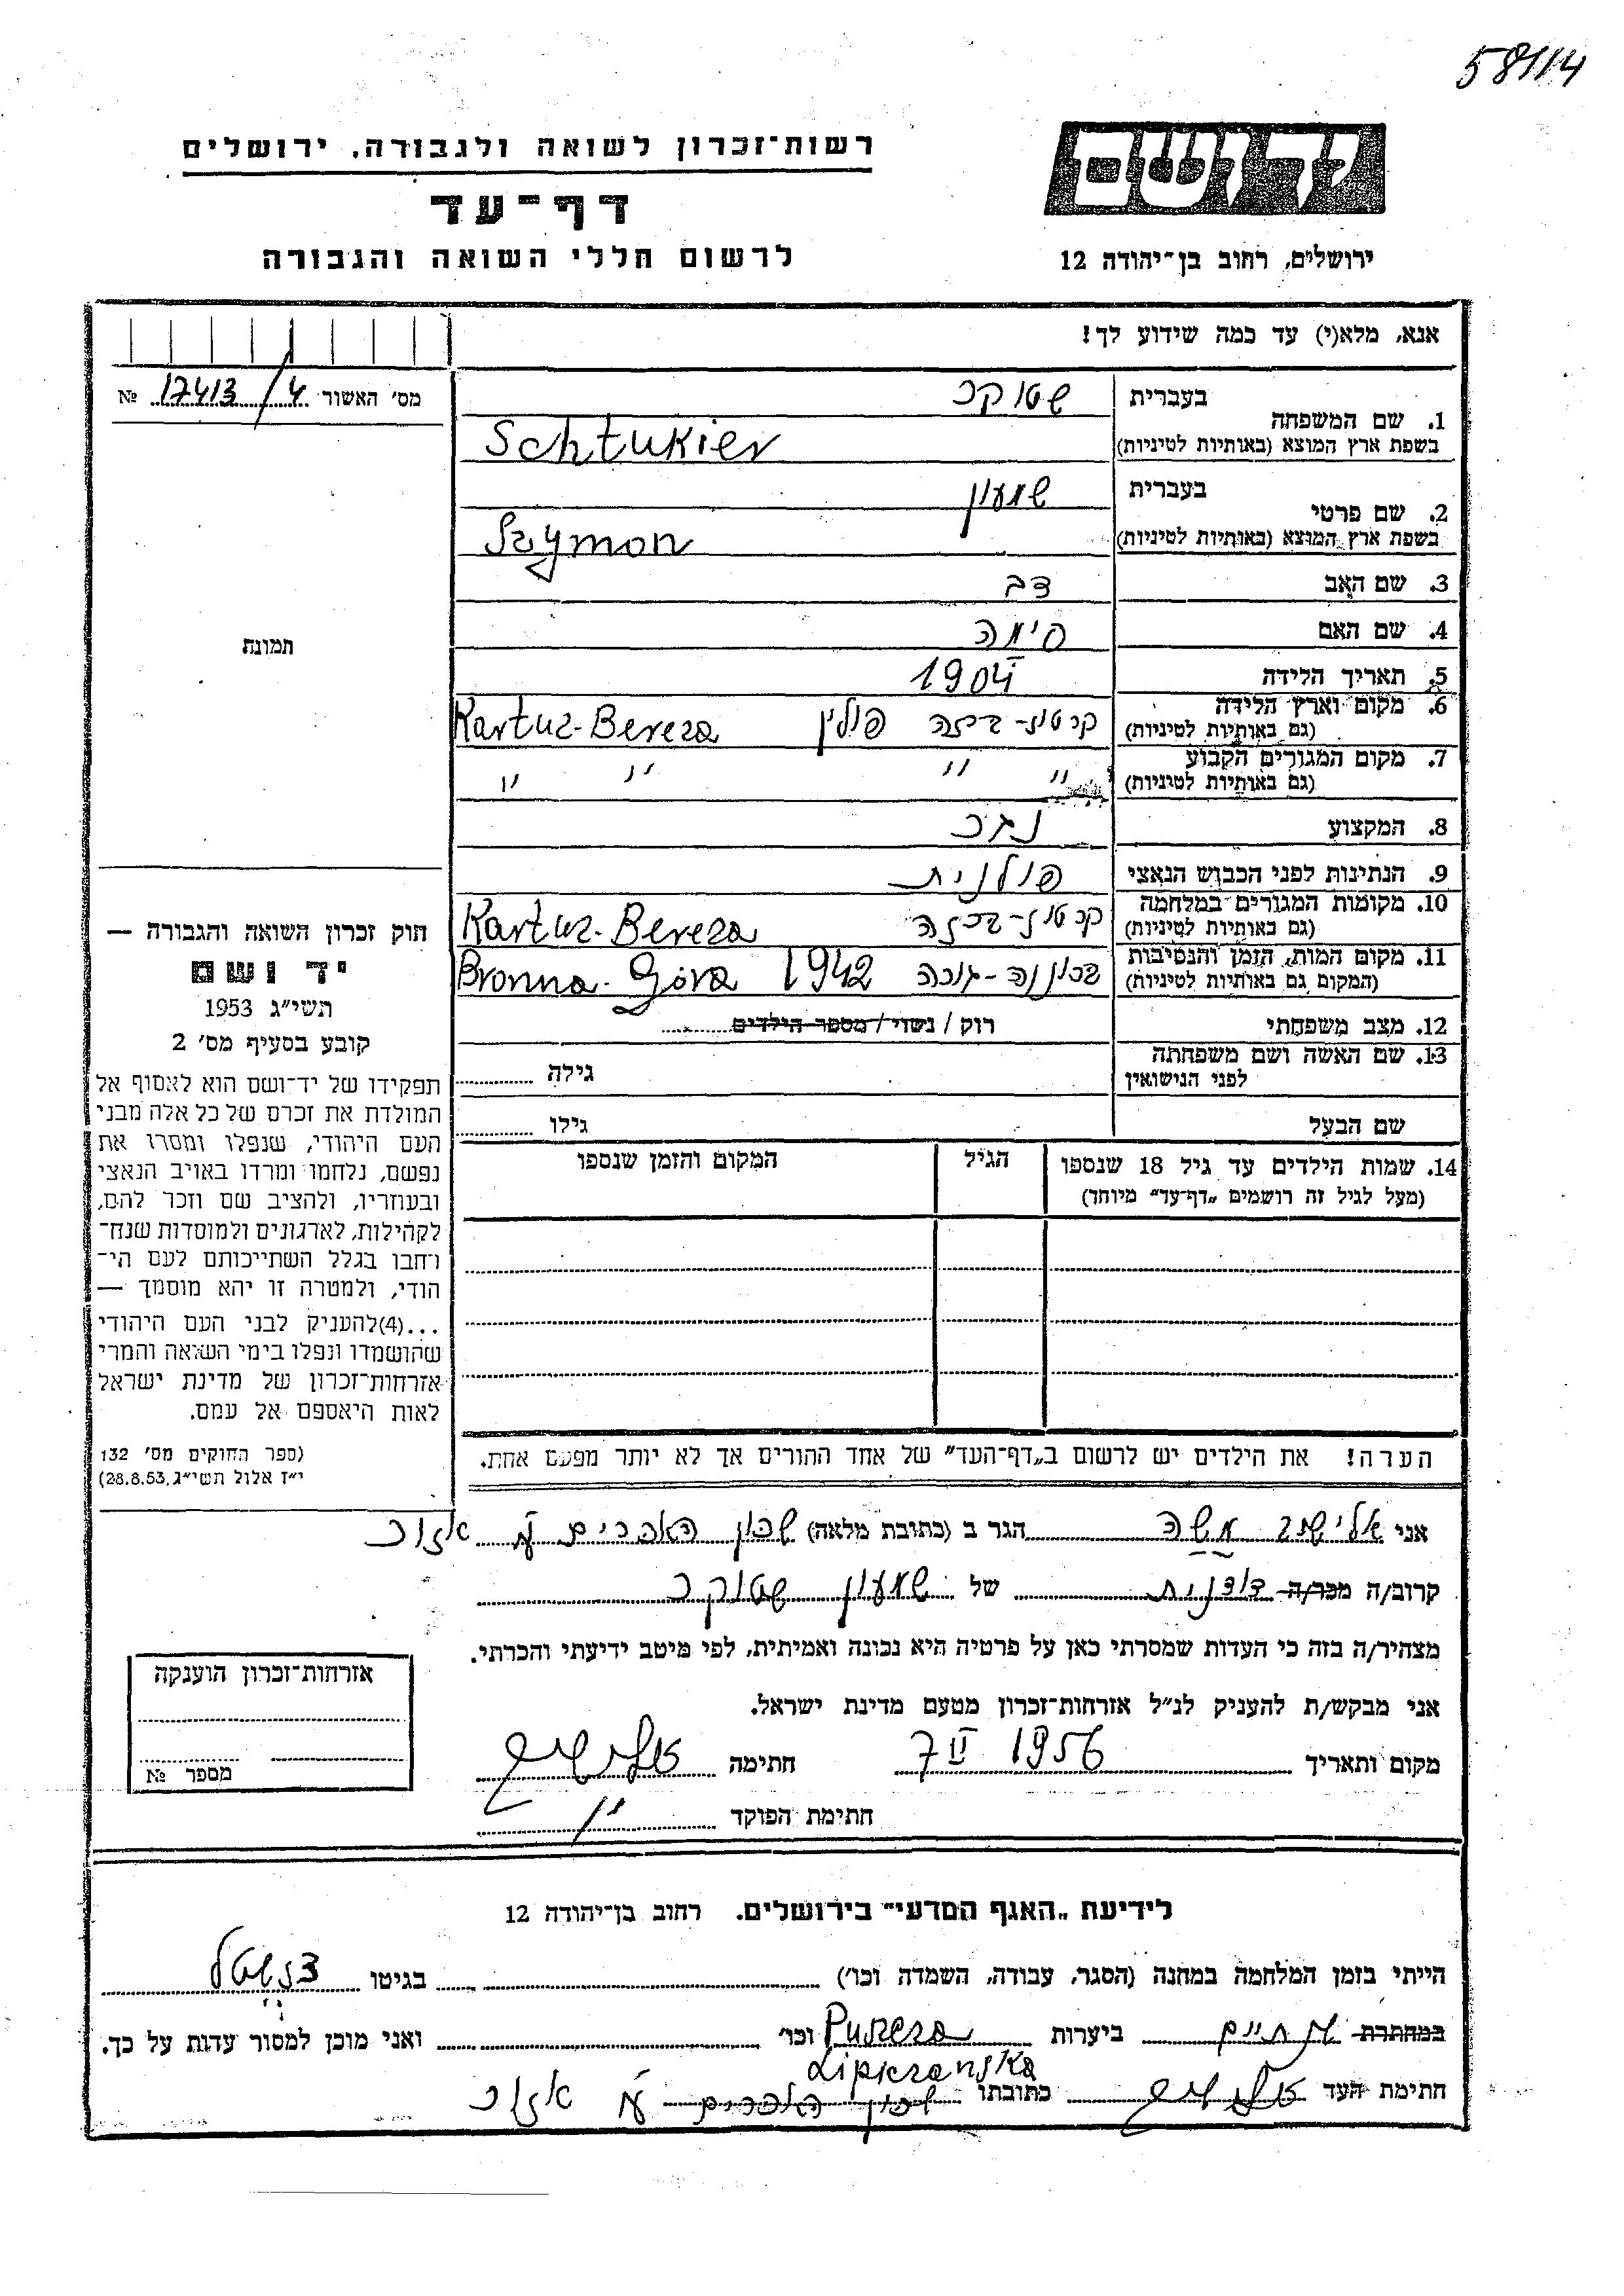 58114
רשות־זכרון לשואה ולגבורה, ירושלים
יד ושם
דף־עד
לרשום חללי השואה והגבורה
ירושלים, רחוב בן־יהודה 12
אנא, מלא(י) עד כמה שידוע לך!
מס' האשור 17413/4 №
1. שם המשפחה
בעברית שטוקר
בשפת ארץ המוצא (באותיות לטיניות) Schtukier
2. שם פרטי
בעברית שמעון
בשפת ארץ המוצא (באותיות לטיניות) Szymon
3. שם האב דב
4. שם האם סימה
5. תאריך הלידה 1904
6. מקום וארץ הלידה
(גם באותיות לטיניות) קרטוז-ברזה פולין Kartuz-Bereza
7. מקום המגורים הקבוע
(גם באותיות לטיניות) " " " "
8. המקצוע נגר
9. הנתינות לפני הכבוש הנאצי פולנית
10. מקומות המגורים במלחמה
(גם באותיות לטיניות) קרטוז-ברזה Kartuz-Bereza
11. מקום המות, הזמן והנסיבות
(המקום גם באותיות לטיניות) ברונה-גורה 1942 Bronna-Góra
12. מצב משפחתי רוק / נשוי / מספר הילדים
13. שם האשה ושם משפחתה
לפני הנישואין גילה
שם הבעל גילו
14. שמות הילדים עד גיל 18 שנספו הגיל המקום והזמן שנספו
(מעל לגיל זה רושמים "דף־עד" מיוחד)
הערה! את הילדים יש לרשום ב"דף־העד" של אחד ההורים אך לא יותר מפעם אחת.
תמונה
חוק זכרון השואה והגבורה —
יד ושם
תשי"ג 1953
קובע בסעיף מס' 2
תפקידו של יד־ושם הוא לאסוף אל
המולדת את זכרם של כל אלה מבני
העם היהודי, שנפלו ומסרו את
נפשם, נלחמו ומרדו באויב הנאצי
ובעוזריו, ולהציב שם וזכר להם,
לקהילות, לארגונים ולמוסדות שנח־
רחבו בגלל השתייכותם לעם הי־
הודי, ולמטרה זו יהא מוסמך —
...(4)להעניק לבני העם היהודי
שהושמדו ונפלו בימי השואה והמרי
אזרחות־זכרון של מדינת ישראל
לאות היאספם אל עמם.
(ספר החוקים מס' 132
י"ז אלול תשי"ג, 28.8.53)
אני אלישב משה הגר ב (כתובת מלאה) שכון האברים אזור
קרוב/ה מכר/ה דודנית של שמעון שטוקר
מצהיר/ה בזה כי העדות שמסרתי כאן על פרטיה היא נכונה ואמיתית, לפי מיטב ידיעתי והכרתי.
אני מבקש/ת להעניק לנ"ל אזרחות־זכרון מטעם מדינת ישראל.
מקום ותאריך 7 II 1956 חתימה
חתימת הפוקד
אזרחות־זכרון הוענקה
מספר №
לידיעת "האגף המדעי" בירושלים. רחוב בן־יהודה 12
הייתי בזמן המלחמה במחנה (הסגר, עבודה, השמדה וכו') בגיטו
במחתרת ביערות Puszcza וכו' ואני מוכן למסור עדות על כך.
חתימת העד כתובתו אזור